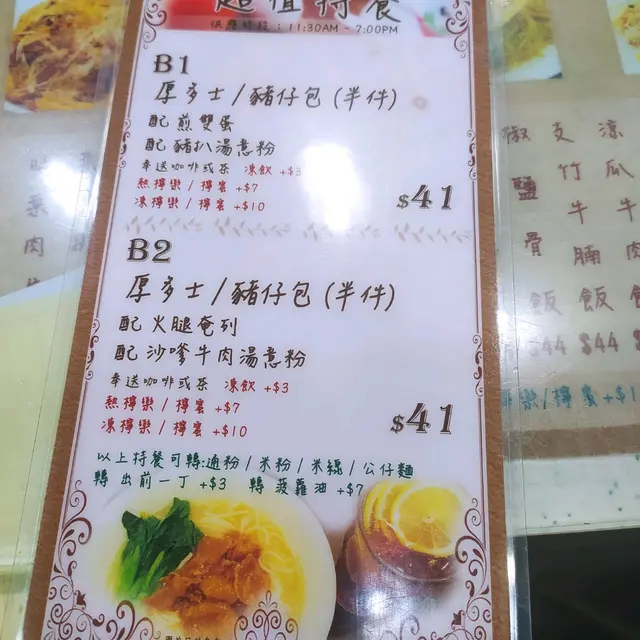 超值特餐
供應時段：11:30AM - 7:00PM
B1
厚多士/豬仔包(半件)
配 煎雙蛋
配 豬扒湯意粉
奉送咖啡或茶 凍飲 +$3
熱檸樂/檸蜜 +$7
凍檸樂/檸蜜 +$10
$41
B2
厚多士/豬仔包(半件)
配 火腿奄列
配 沙嗲牛肉湯意粉
奉送咖啡或茶 凍飲 +$3
熱檸樂/檸蜜 +$7
凍檸樂/檸蜜 +$10
$41
以上特餐可轉:通粉/米粉/米線/公仔麵
轉 出前一丁 +$3 轉 菠蘿油 +$7
椒鹽骨飯 $44
支竹牛腩飯 $44
涼瓜牛肉飯